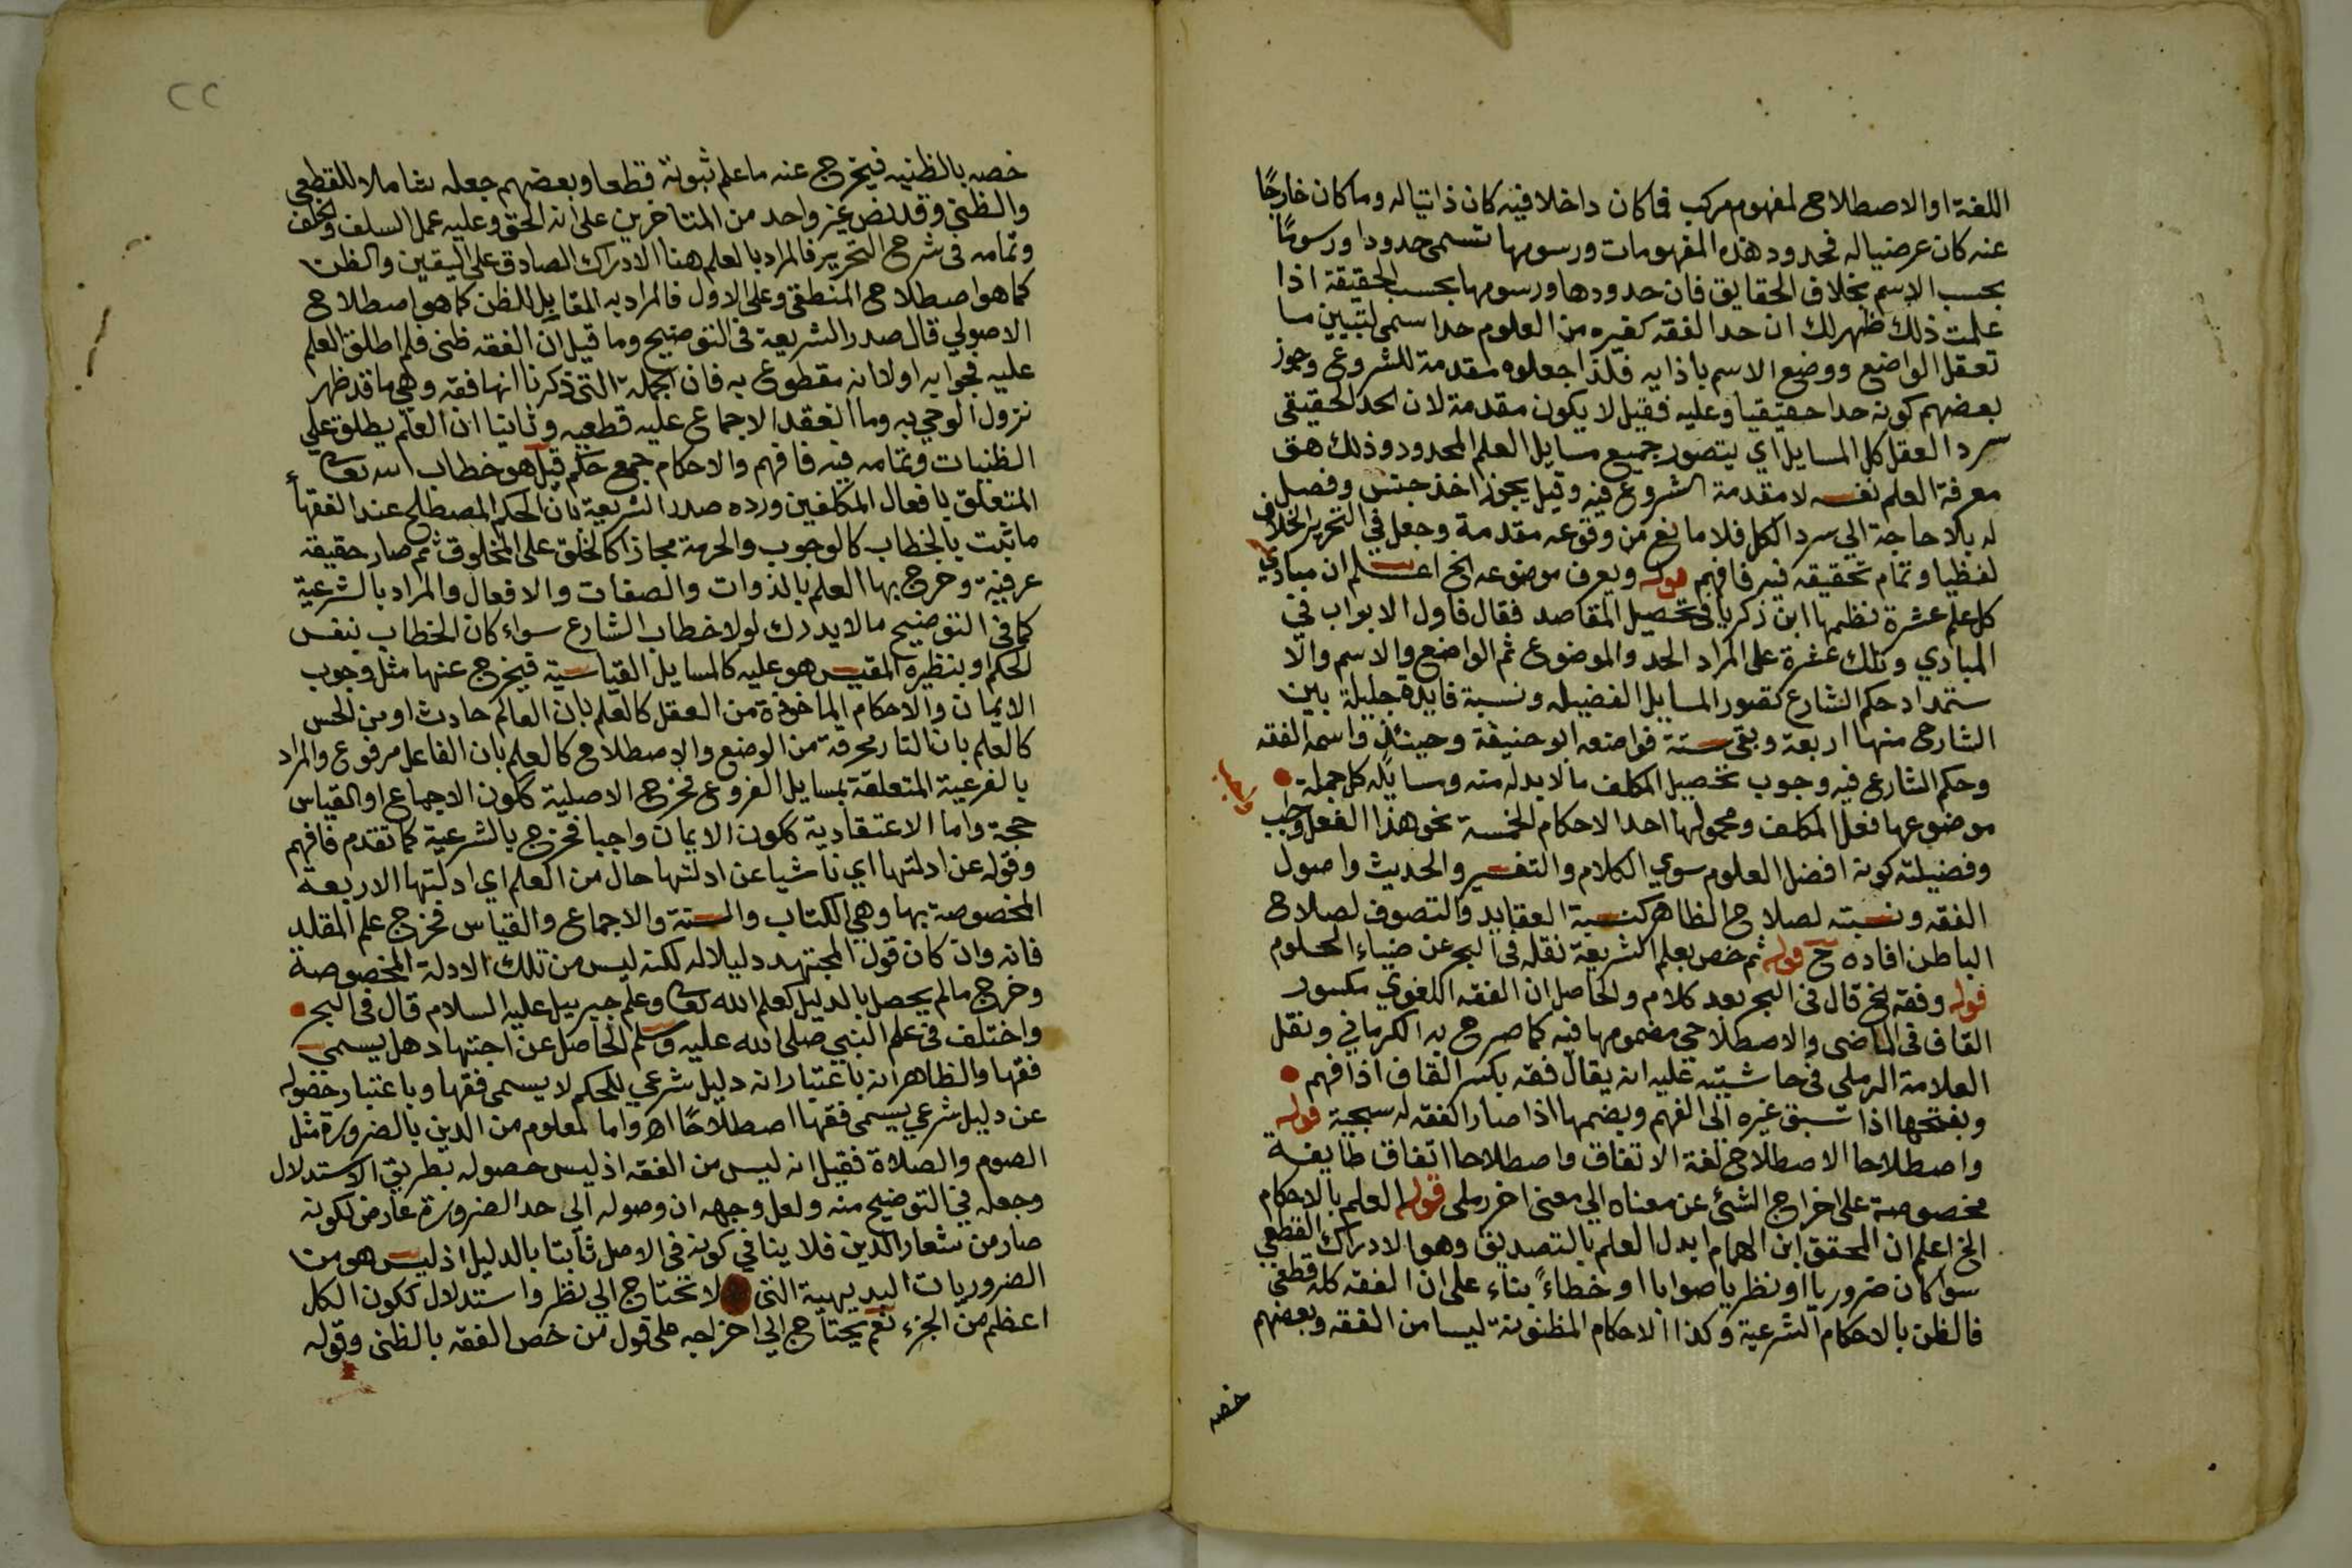 اللغة او الاصطلاح لمفهوم مركب فما كان داخلا فيه كان ذاتيا له وما كان خارجًا
عنه كان عرضيا له فحدود هذه المفهومات ورسومها تسمى حدودا ورسومًا
بحسب الاسم بخلاف الحقايق فان حدودها ورسومها بحسب الحقيقة اذا
علمت ذلك ظهر لك ان حد الفقه كغيره من العلوم حد اسمى لتبيين ما
تعقل الواضع ووضع الاسم باذايه فلذا جعلوه مقدمة للشروع وجوز
بعضهم كونه حدا حقيقيا وعليه فقيل لا يكون مقدمة لان الحد الحقيقي
سرد العقل كل المسايل اي يتصور جميع مسايل العلم المحدود وذلك هو
معرفة العلم نفسه لا مقدمة الشروع فيه وقيل يجوز اخذ جنس وفصل
له بلا حاجة الي سرد الكل فلا مانع من وقوعه مقدمة وجعل في التحرير الخلاف
لفظيا وتمام تحقيقه فيه فافهم قوله ويعرف موضوعه الخ اعلم ان مبادي
كل علم عشرة نظمها ابن ذكري في تحصيل المقاصد فقال فاول الابواب في
المبادي وتلك عشرة على المراد الحد والموضوع ثم الواضع والاسم والا
ستمداد حكم الشارع تصور المسايل الفضيله ونسبة فايدة جليلة بين
الشارح منها اربعة وبقى ستة فواضعه ابو حنيفة وحينئذ واسمه الفقه
وحكم الشارع فيه وجوب تحصيل المكلف ما لا بد له منه ومسايله كل جملة
موضوعها فعل المكلف ومحمولها احد الاحكام الخمسة نحو هذا الفعل واجب
وفضيلته كونه افضل العلوم سوي الكلام والتفسير والحديث واصول
الفقه ونسبته لصلاح الظاهر كنسبة العقايد والتصوف لصلاح
الباطن افاده ح قوله ثم خص بعلم الشريعة نقله في البحر عن ضياء الحلوم
قوله وفقه الخ قال في البحر بعد كلام والحاصل ان الفقه اللغوي مكسور
القاف في الماضى والاصطلاحي مضمومها فيه كما صرح به الكرماني ونقل
العلامة الرملى في حاشيته عليه انه يقال فقه بكسر القاف اذا فهم
وبفتحها اذا سبق غيره الى الفهم وبضمها اذا صار الفقه له سجية قوله
واصطلاحا الاصطلاح لغة الاتفاق واصطلاحا اتفاق طايفة
مخصوصة على اخراج الشئ عن معناه الي معنى اخر رملى قوله العلم بالاحكام
الخ اعلم ان المحقق ابن الهمام ابدل العلم بالتصديق وهو الادراك القطعي
سوا كان ضروريا او نظريا صوابا او خطاءً بناء على ان الفقه كله قطعى
فالظن بالاحكام الشرعية وكذا الاحكام المظنونة ليسا من الفقه وبعضهم
خصه
خصه بالظنيه فيخرج عنه ما علم ثبوته قطعا وبعضهم جعله شاملا للقطعي
والظنى وقد نص غير واحد من المتاخرين على انه الحق وعليه عمل السلف والخلف
وتمامه فى شرح التحرير فالمراد بالعلم هنا الادراك الصادق على اليقين والظن
كما هو اصطلاح المنطقى وعلى الاول فالمراد به المقابل للظن كما هو اصطلاح
الاصولي قال صدر الشريعة فى التوضيح وما قيل ان الفقه ظنى فلم اطلق العلم
عليه فجوابه اولا انه مقطوع به فان الجملة التى ذكرنا انها فقه وهي ما قد ظهر
نزول الوحي به وما انعقد الاجماع عليه قطعيه وثانيا ان العلم يطلق على
الظنيات وتمامه فيه فافهم والاحكام جمع حكم قيل هو خطاب الله تعالى
المتعلق بافعال المكلفين ورده صدر الشريعة بان الحكم المصطلح عند الفقهاء
ما ثبت بالخطاب كالوجوب والحرمة مجازا كالخلق على المخلوق ثم صار حقيقة
عرفية وخرج بها العلم بالذوات والصفات والافعال والمراد بالشرعية
كما في التوضيح ما لا يدرك لولا خطاب الشارع سواء كان الخطاب بنفس
الحكم او بنظيره المقيس هو عليه كالمسايل القياسية فيخرج عنها مثل وجوب
الايمان والاحكام الماخوذة من العقل كالعلم بان العالم حادث او من الحس
كالعلم بان النار محرقة من الوضع والاصطلاح كالعلم بان الفاعل مرفوع والمراد
بالفرعية المتعلقة بمسايل الفروع فخرج الاصلية ككون الاجماع او القياس
حجة واما الاعتقادية ككون الايمان واجبا فخرج بالشرعية كما تقدم فافهم
وقوله عن ادلتها اي ناشيا عن ادلتها حال من العلم اي ادلتها الاربعة
المخصوصة بها وهي الكتاب والسنة والاجماع والقياس فخرج علم المقلد
فانه وان كان قول المجتهد دليلا له لكنه ليس من تلك الادلة المخصوصة
وخرج ما لم يحصل بالدليل كعلم الله تعالى وعلم جبريل عليه السلام قال فى البحر
واختلف فى علم النبي صلى الله عليه وسلم الحاصل عن اجتهاد هل يسمى
فقها والظاهر انه باعتبار انه دليل شرعي للحكم لا يسمى فقها وباعتبار حصوله
عن دليل شرعي يسمى فقها اصطلاحًا اهـ واما المعلوم من الدين بالضرورة مثل
الصوم والصلاة فقيل انه ليس من الفقه اذ ليس حصوله بطريق الاستدلال
وجعله في التوضيح منه ولعل وجهه ان وصوله الى حد الضرورة عارض لكونه
صار من شعار الدين فلا ينافي كونه فى الاصل ثابتا بالدليل اذ ليس هو من
الضروريات البديهية التى لا تحتاج الي نظر واستدلال ككون الكل
اعظم من الجزء نعم يحتاج الي اخراجه على قول من خص الفقه بالظنى وقوله